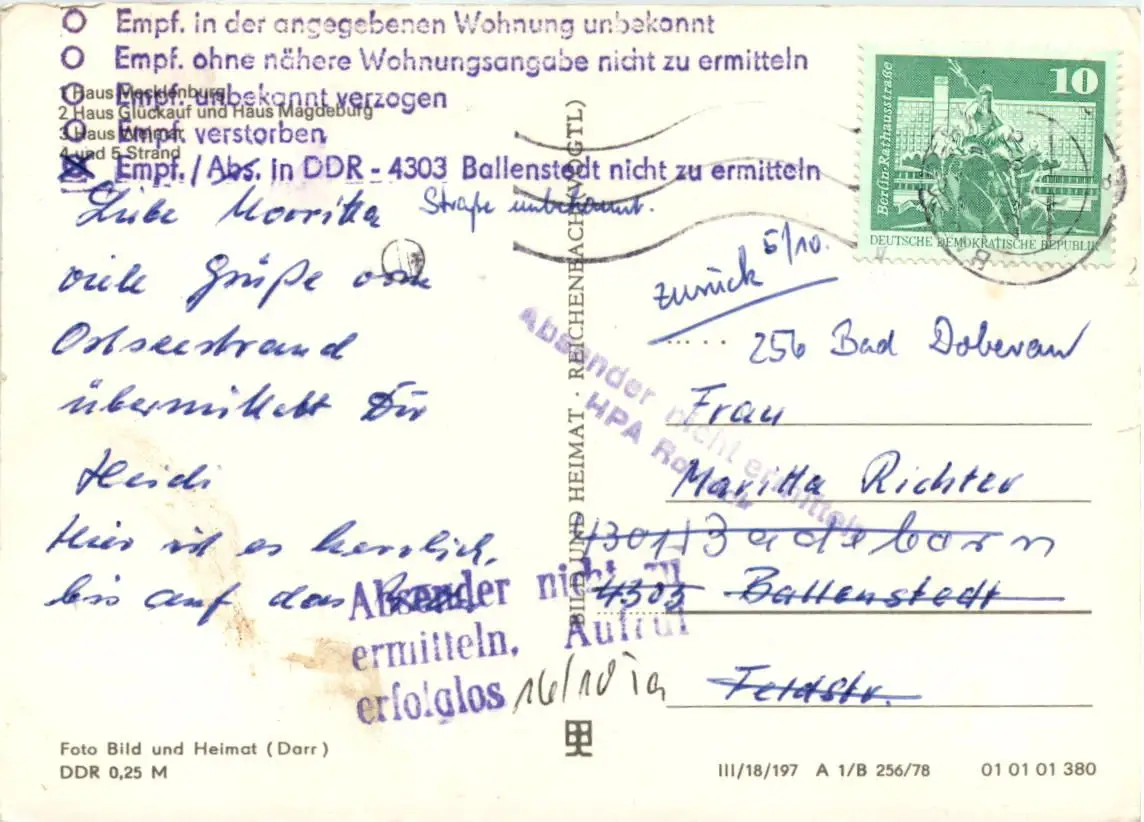 Empf. in der angegebenen Wohnung unbekannt
Empf. ohne nähere Wohnungsangabe nicht zu ermitteln
Empf. unbekannt verzogen
Empf. verstorben
Empf./Abs. in DDR - 4303 Ballenstedt nicht zu ermitteln
1 Haus Mecklenburg
2 Haus Glückauf und Haus Magdeburg
3 Haus Weimar
4 und 5 Strand
Straße unbekannt.
Liebe Marritta
viele Grüße vom
Ostseestrand
übermittelt Dir
Heidi
Hier ist es herrlich,
bis auf das
Absender nicht zu
ermitteln, Aufruf
erfolglos
16/10
Foto Bild und Heimat (Darr)
DDR 0,25 M
BILD UND HEIMAT · REICHENBACH (VOGTL)
10
Berlin-Rathausstraße
DEUTSCHE DEMOKRATISCHE REPUBLIK
zurück 5/10.
256 Bad Doberan
Absender nicht ermittelt
HPA
Frau
Maritta Richter
4301 Badeborn
4303 Ballenstedt
Feldstr.
III/18/197 A 1/B 256/78 01 01 01 380